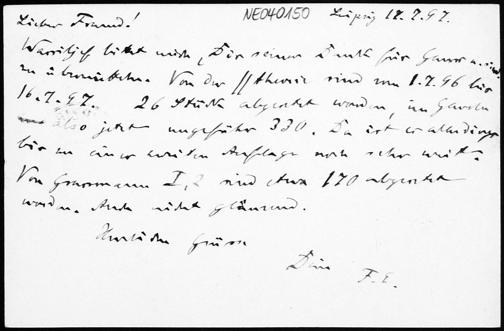 NE040150
Lieber Freund! Leipzig 17.7.97.
bittet mich, Dir seinen Dank für
zu übermitteln. Von der //theorie sind vom 1.7.96 bis
16.7.97. 26 Stück abgesetzt worden, im Ganzen
also jetzt ungefähr 330. Da ist es allerdings
bis zu einer zweiten Auflage noch sehr weit.
Von Grassmann I,2 sind etwa 170 abgesetzt
worden. Auch nicht glänzend.
Herzliche Grüsse
Dein
F.E.